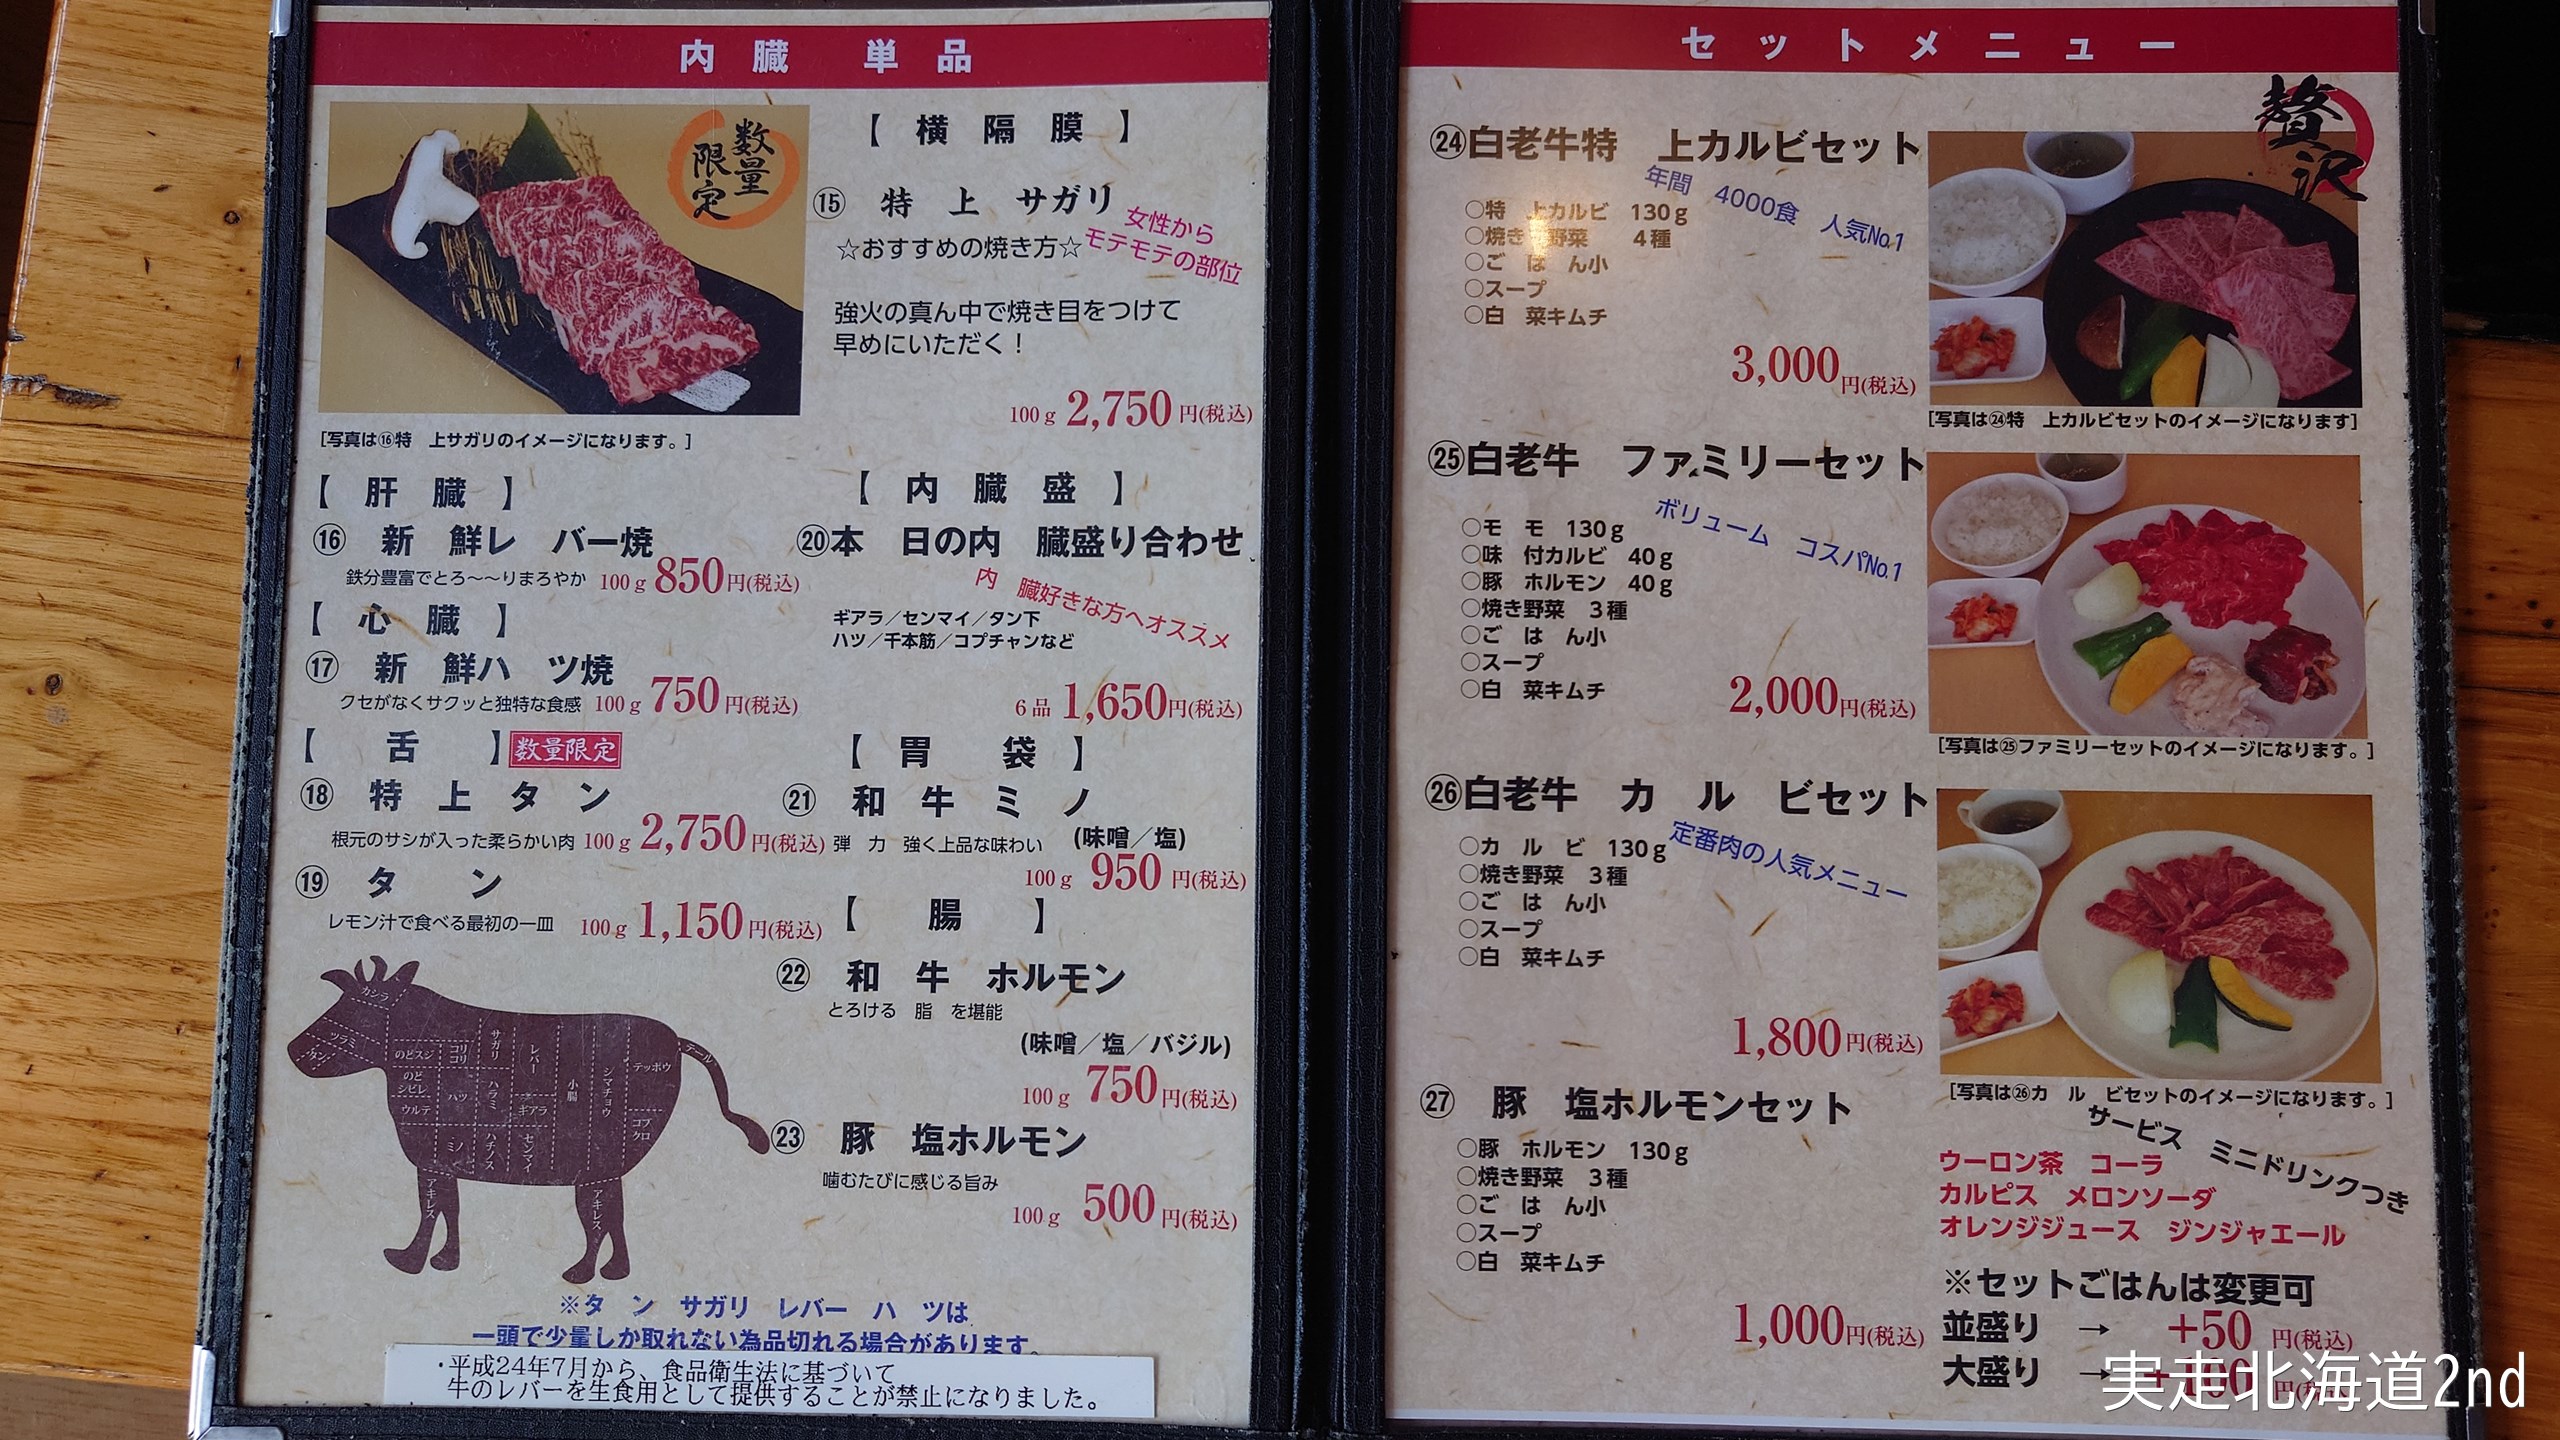 内臓 単品
数量
限定
【横隔膜】
⑮ 特上サガリ
女性から
モテモテの部位
☆おすすめの焼き方☆
強火の真ん中で焼き目をつけて
早めにいただく！
100g 2,750円(税込)
[写真は⑯特 上サガリのイメージになります。]
【肝臓】
⑯ 新鮮レバー焼
鉄分豊富でとろ～～りまろやか 100g 850円(税込)
【心臓】
⑰ 新鮮ハツ焼
クセがなくサクッと独特な食感 100g 750円(税込)
【舌】数量限定
⑱ 特上タン
根元のサシが入った柔らかい肉 100g 2,750円(税込)
⑲ タン
レモン汁で食べる最初の一皿 100g 1,150円(税込)
【内臓盛】
⑳本日の内臓盛り合わせ
内臓好きな方へオススメ
ギアラ／センマイ／タン下
ハツ／千本筋／コプチャンなど
6品 1,650円(税込)
【胃袋】
㉑ 和牛ミノ
弾力強く上品な味わい (味噌／塩)
100g 950円(税込)
【腸】
㉒ 和牛ホルモン
とろける脂を堪能
(味噌／塩／バジル)
100g 750円(税込)
㉓ 豚塩ホルモン
噛むたびに感じる旨み
100g 500円(税込)
カシラ
ツラミ
タン
のどスジ
コリコリ
サガリ
レバー
のどシビレ
ハツ
ハラミ
ギアラ
小腸
シマチョウ
テッポウ
テール
ウルテ
ミノ
ハチノス
センマイ
コブクロ
アキレス
アキレス
※タン サガリ レバー ハツは
一頭で少量しか取れない為品切れる場合があります。
・平成24年7月から、食品衛生法に基づいて
牛のレバーを生食用として提供することが禁止になりました。
セットメニュー
贅沢
㉔白老牛特 上カルビセット
年間 4000食 人気№1
○特 上カルビ 130g
○焼き野菜 4種
○ごはん小
○スープ
○白菜キムチ
3,000円(税込)
[写真は㉔特 上カルビセットのイメージになります]
㉕白老牛 ファミリーセット
ボリューム コスパ№1
○モモ 130g
○味付カルビ 40g
○豚ホルモン 40g
○焼き野菜 3種
○ごはん小
○スープ
○白菜キムチ
2,000円(税込)
[写真は㉕ファミリーセットのイメージになります。]
㉖白老牛 カルビセット
定番肉の人気メニュー
○カルビ 130g
○焼き野菜 3種
○ごはん小
○スープ
○白菜キムチ
1,800円(税込)
[写真は㉖カルビセットのイメージになります。]
㉗ 豚塩ホルモンセット
○豚ホルモン 130g
○焼き野菜 3種
○ごはん小
○スープ
○白菜キムチ
1,000円(税込)
サービス ミニドリンクつき
ウーロン茶 コーラ
カルピス メロンソーダ
オレンジジュース ジンジャエール
※セットごはんは変更可
並盛り → +50円(税込)
大盛り → +100円(税込)
実走北海道2nd